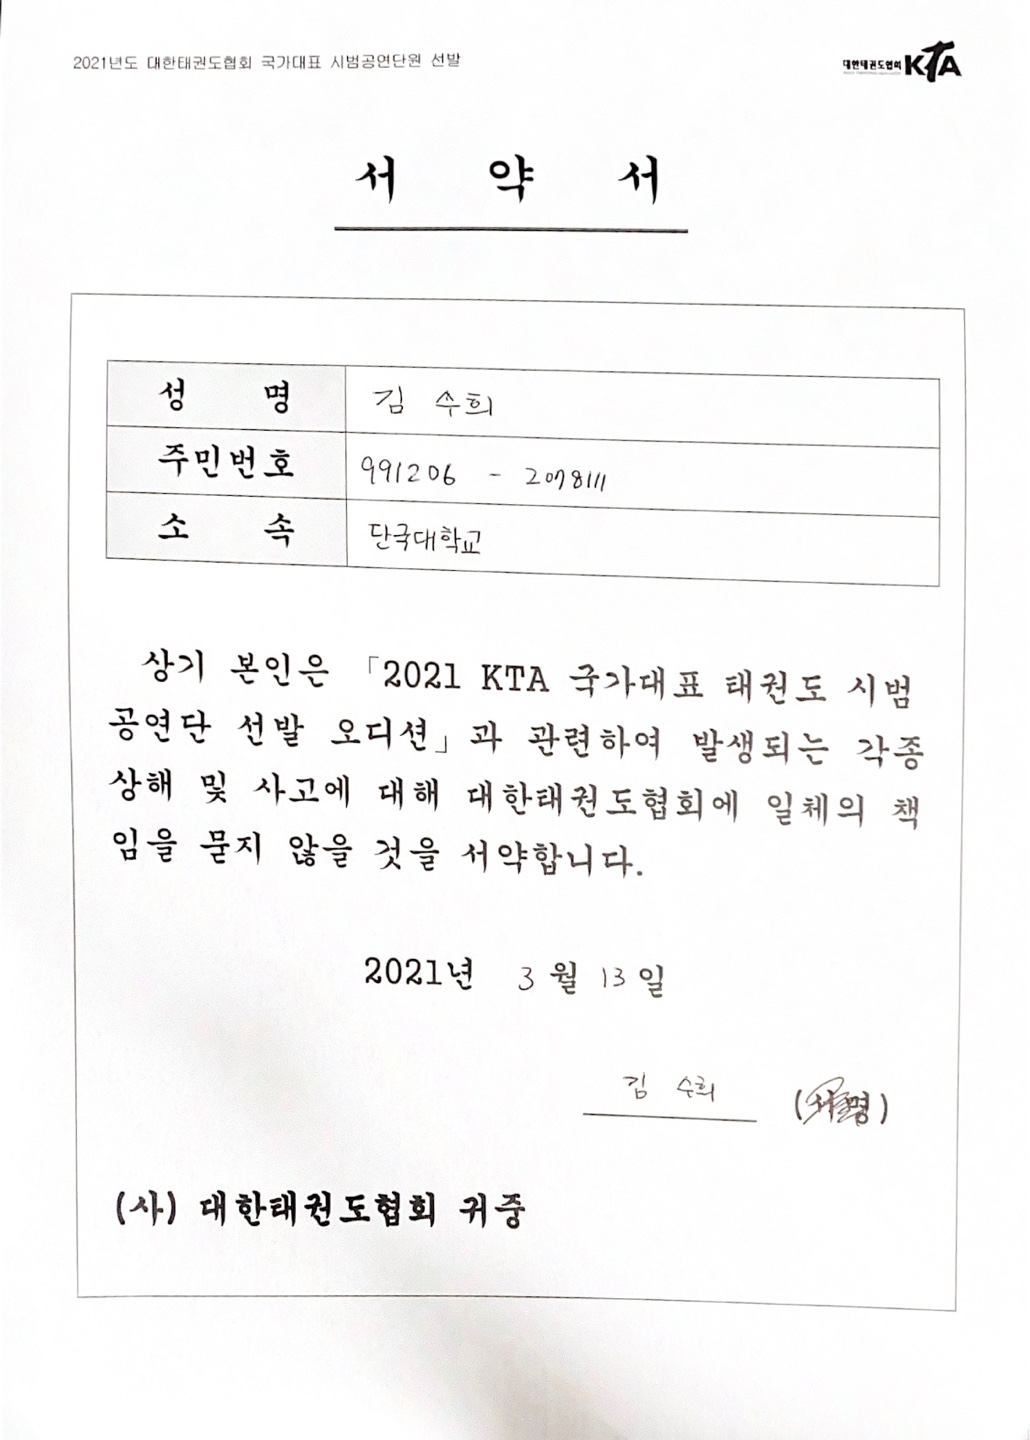 2021년도 대한태권도협회 국가대표 시범공연단원 선발
대한태권도협회 KTA
서 약 서
성 명 김 수희
주민번호 991206 - 2078111
소 속 단국대학교
상기 본인은 「2021 KTA 국가대표 태권도 시범
공연단 선발 오디션」과 관련하여 발생되는 각종
상해 및 사고에 대해 대한태권도협회에 일체의 책
임을 묻지 않을 것을 서약합니다.
2021년 3월 13일
김 수희 (서명)
(사) 대한태권도협회 귀중